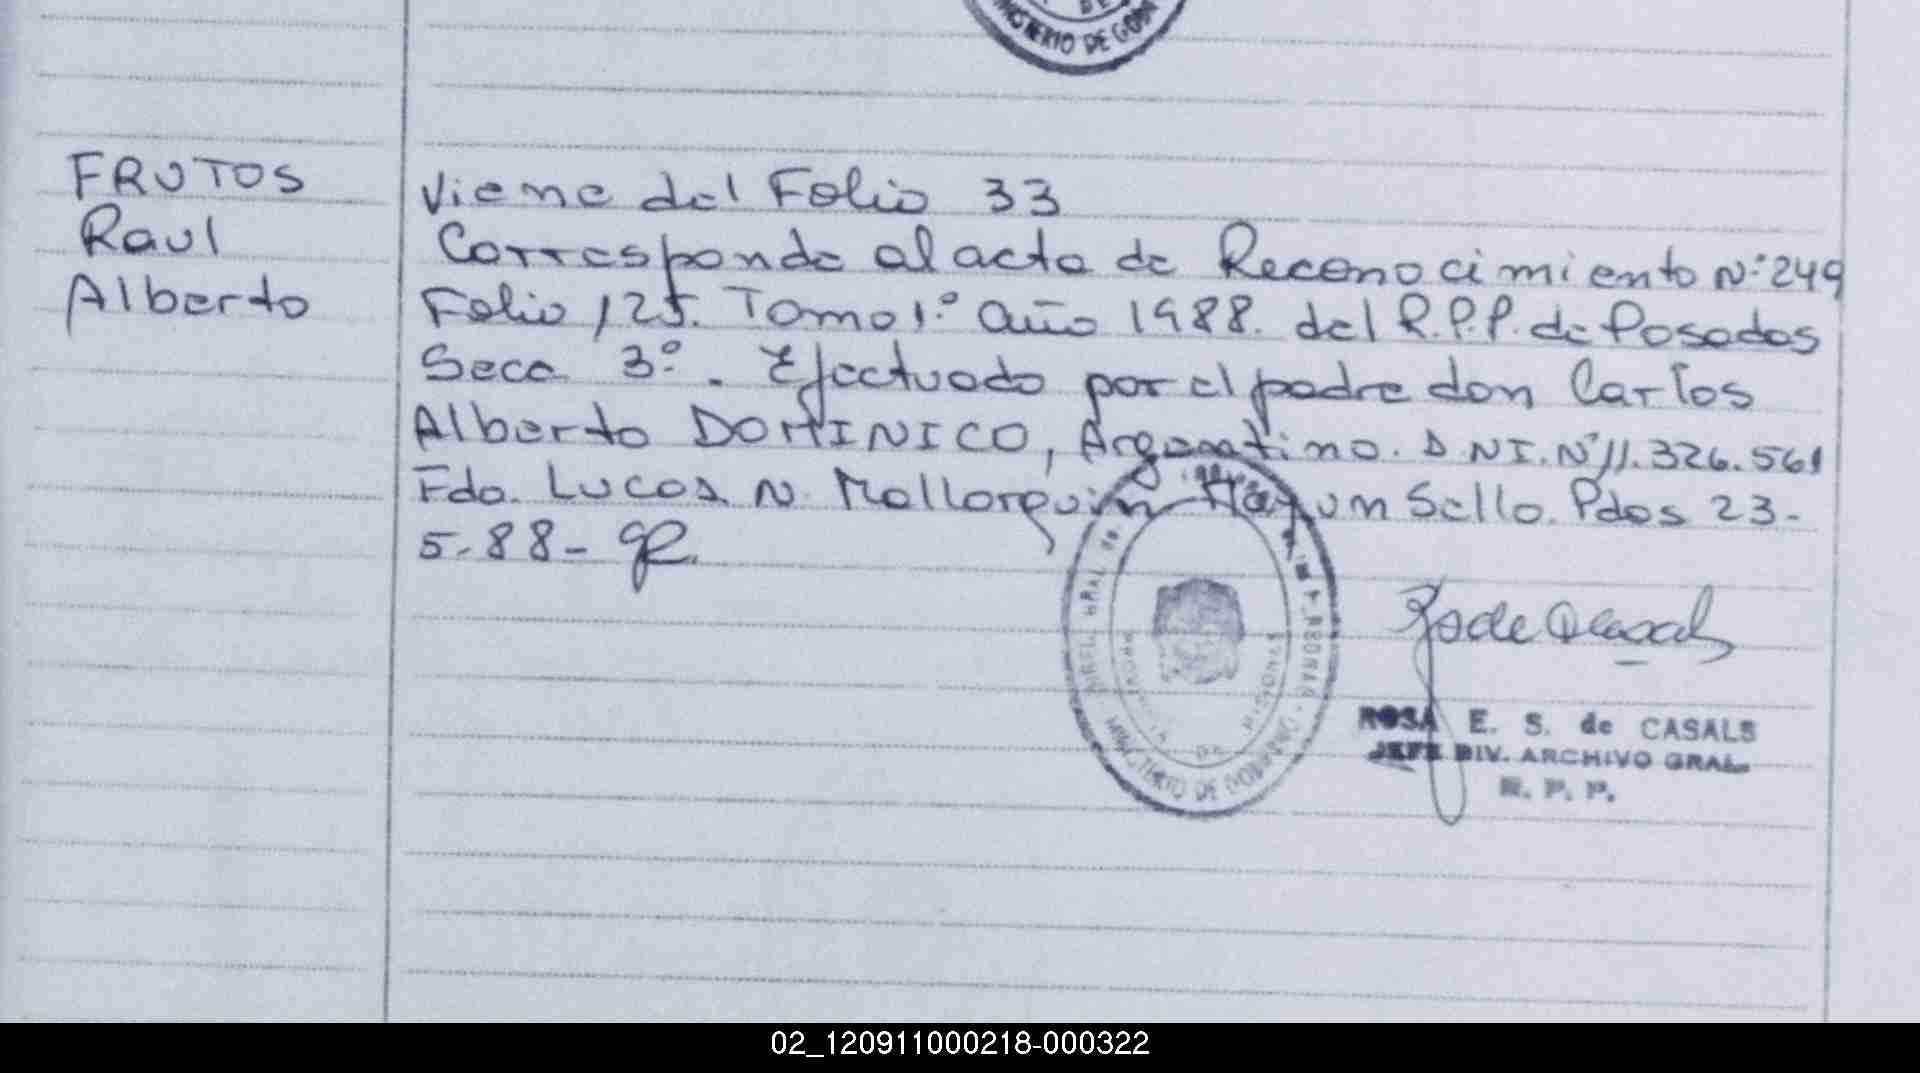 MINISTERIO DE GOBI
FRUTOS
Raul
Alberto
Viene del Folio 33
Corresponde al acta de Reconocimiento Nº 249
Folio 125. Tomo 1º año 1988. del R.P.P. de Posadas
Secc 3º. Efectuado por el padre don Carlos
Alberto DOMINICO, Argentino. D.NI. Nº 11.326.561
Fdo. Lucas N. Mallorquin Hay un Sello. Pdas 23-
5-88-
GRAL de
PROVINCIA DE MISIONES
MINISTERIO DE GOBIERNO
ROSA E. S. de CASALS
JEFE DIV. ARCHIVO GRAL.
R. P. P.
02_120911000218-000322